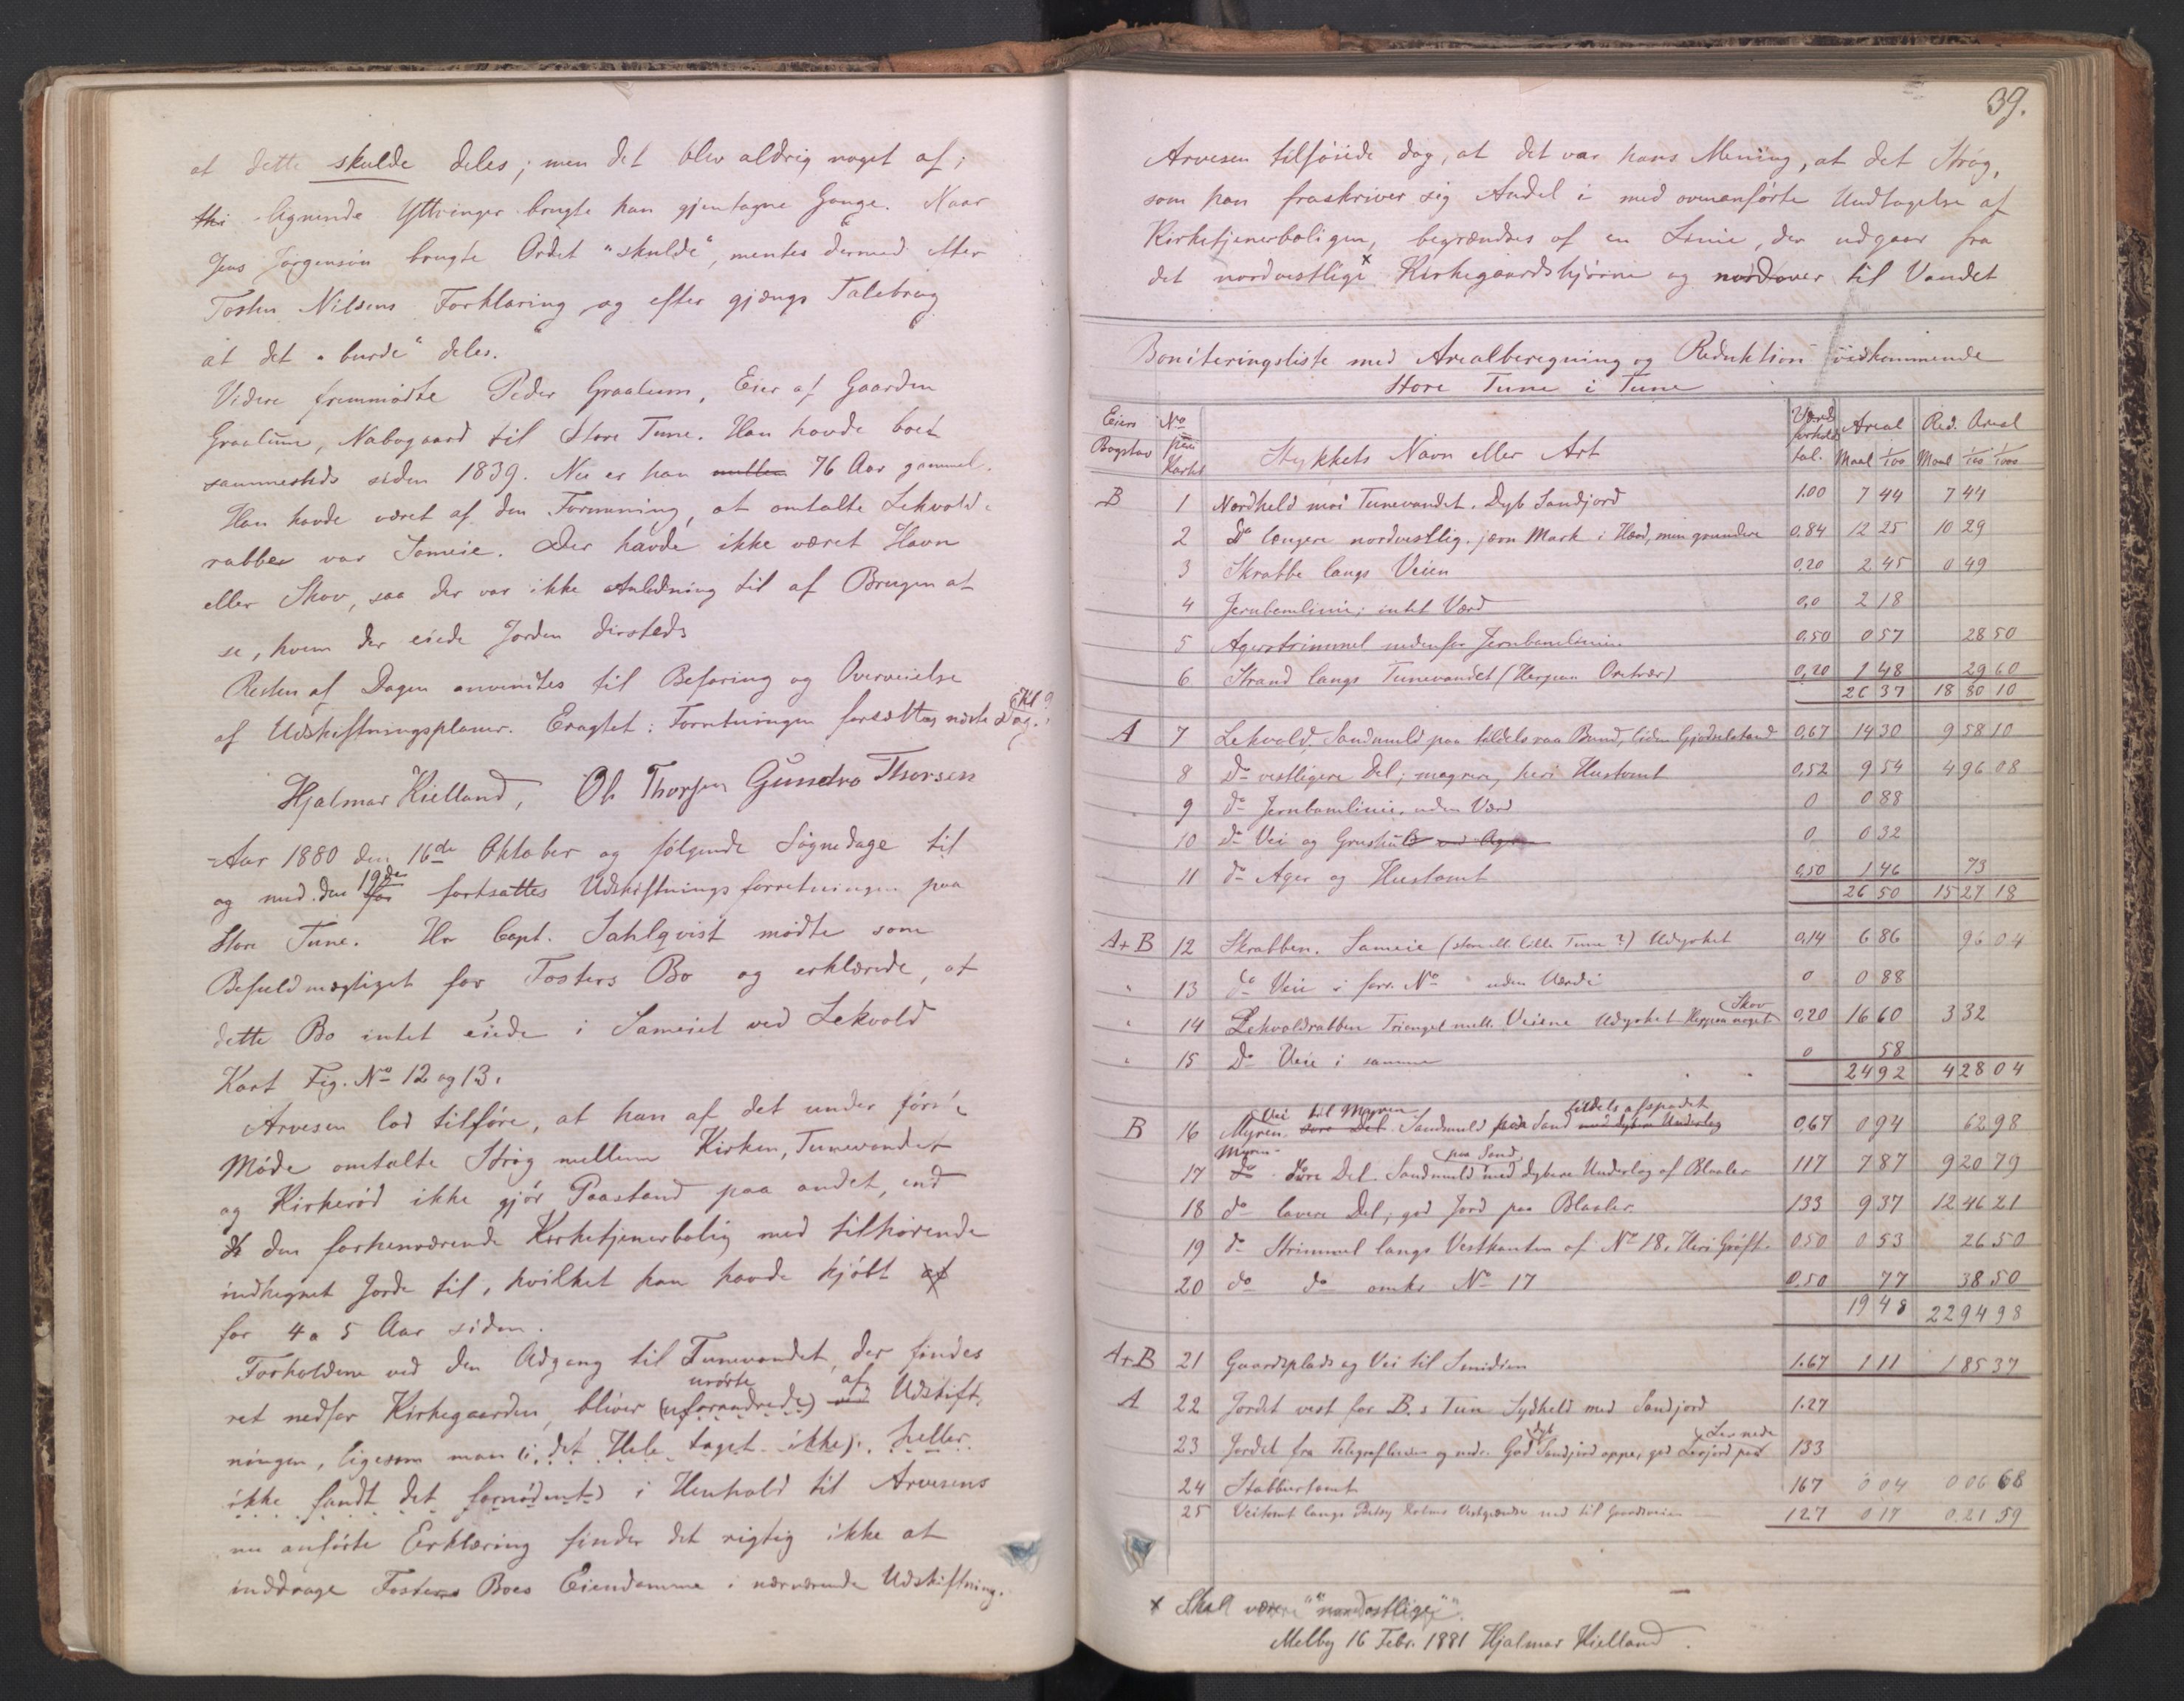 at dette skulde deles; men det blev aldrig noget af;
thi lignende Yttringer brugte han gjentagne Gange. Naar
Jens Jörgensön brugte Ordet "skulde", mentes dermed efter
Tosten Nilsens Forklaring og efter gjængs Talebrug
at det "burde" deles.
Videre fremmödte Peder Graalum, Eier af Gaarden
Graalum, Nabogaard til Store Tune. Han havde boet
sammesteds siden 1839. Nu er han mellem 76 Aar gammel.
Han havde været af den Formening, at omtalte Lekvold-
rabber var Sameie. Der havde ikke været Havn
eller Skov, saa der var ikke Anledning til af Brugen at
se, hvem der eiede Jorden dersteds
Resten af Dagen anvendtes til Befaring og Overveielse
af Udskiftningsplaner. Eragtet: Forretningen forsættes næste Dag. Kl 9
Hjalmar Kielland, Ole Thorsen Gundro Thorsen
Aar 1880 den 16de Oktober og fölgende Sögnedage til
og med den 19de for fortsattes Udskiftningsforretningen paa
Store Tune. Hr Capt. Sahlqvist mödte som
Befuldmægtiget for Tosters Bo og erklærede, at
dette Bo intet eiede i Sameiet ved Lekvold
Kart Fig. No 12 og 13.
Arvesen lod tilföre, at han af det under förste
Möde omtalte Strög mellem Kirken, Tunevandet
og Kirkeröd ikke gjör Paastand paa andet, end
den forhenværende Kirketjenerbolig med tilhörende
indhegnet Jorde til, hvilket han havde kjöbt af
for 4 a 5 Aar siden.
Forholdene ved den Adgang til Tunevandet, der findes
ret nedfor Kirkegaarden, bliver (uforandrede) urörte ved af Udskift-
ningen, ligesom man (i det Hele taget ikke) heller
ikke fandt det fornödent) i Henhold til Arvesens
nu anförte Erklæring finder det rigtig ikke at
inddrage Tosters Boes Eiendomme i nærværende Udskiftning.
39.
Arvesen tilföiede dog, at det var hans Mening, at det Strög,
som han fraskriver sig Andel i med ovenanförte Undtagelse af
Kirketjenerboligen, begrændses af en Linie, der udgaar fra
det nordvestlige x Kirkegaardshjörne og nordover til Vandet
Boniteringsliste med Arealberegning og Reduktion vedkommende
Store Tune i Tune
Eiers Bogstav No paa Kartet Stykkets Navn eller Art Værdiforholdstal. Areal Maal 1/100 Red. Areal Maal 1/100 1/1000
B 1 Nordheld mod Tunevandet. Dyb Sandjord 1.00 7 44 7 44
2 Do længere nordvestlig. jævn Mark i Hæld, men grundere 0,84 12 25 10 29
3 Skrabbe langs Veien 0,20 2 45 0 49
4 Jernbanelinie; intet Værd 0,0 2 18
5 Agerstrimmel nedenfor Jernbanelinien 0,50 0 57 28 50
6 Strand langs Tunevandet (Herpaa Oretrær) 0,20 1 48 29 60
26 37 18 80 10
A 7 Lekvold, Sandmuld paa tildels raa Bund, liden Gjödselstand 0,67 14 30 9 58 10
8 Do vestligere Del; magrere, heri Hustomt 0,52 9 54 4 96 08
9 do Jernbanelinie, uden Værd 0 0 88
10 do Vei og Grushul ved Ager 0 0 32
11 do Ager og Hustomt 0,50 1 46 73
26 50 15 27 18
A+B 12 Skrabben. Sameie (store ell. lille Tune?) Udyrket 0,14 6 86 96 04
" 13 do Veie i forr. No uden Værdi 0 0 88
" 14 Lekvoldrabben Triangel mell. Veiene Udyrket Herpaa noget Skov 0,20 16 60 3 32
" 15 Do Veie i samme 0 58
24 92 4 28 04
B 16 Myren. Vei til Myren söre Del. Sandmuld paa Sand tildels afspadet med dybere Underlag 0,67 0 94 62 98
17 do Myren söre Del. Sandmuld paa Sand med dybere Underlag af Blaaler 117 7 87 9 20 79
18 do lavere Del; god Jord paa Blaaler 133 9 37 12 46 21
19 do Strimmel langs Vestkanten af No 18. Heri Gröft. 0,50 0 53 26 50
20 do do omkr No 17 0,50 77 38 50
19 48 22 94 98
A+B 21 Gaardsplads og Vei til Smidien 1.67 1 11 1 85 37
A 22 Jordet vest for B.s Tun Sydheld med Sandjord 1.27
23 Jordet fra Telegraflinien og nedr. God dyb Sandjord oppe, god Lerjord Ler nede 133
24 Stabburtomt 167 0 04 0 06 68
25 Veitomt langs Vestgrændse ned til Gaardsveien 127 0 17 0.21 59
x Skal være "nordostlige".
Melby 16 Febr. 1881 Hjalmar Kielland.